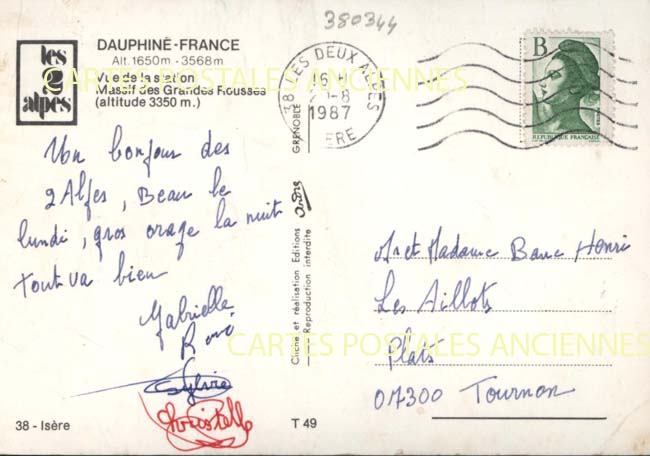 380344
les
2
alpes
DAUPHINÉ-FRANCE
Alt. 1650m - 3568m
Vue de la station
Massif des Grandes Rousses
(altitude 3350 m.)
CARTES POSTALES ANCIENNES
38 LES DEUX ALPES
1987
ISERE
B
REPUBLIQUE FRANÇAISE
Un bonjour des
2 Alpes, Beau le
lundi, gros orage la nuit
tout va bien
Gabrielle
René
Sylvie
Christelle
GRENOBLE
Cliché et réalisation Editions André
Reproduction interdite
Mr et Madame Banc Henri
Les Aillots
Plats
07300 Tournon
CARTES POSTALES ANCIENNES
38 - Isère
T 49